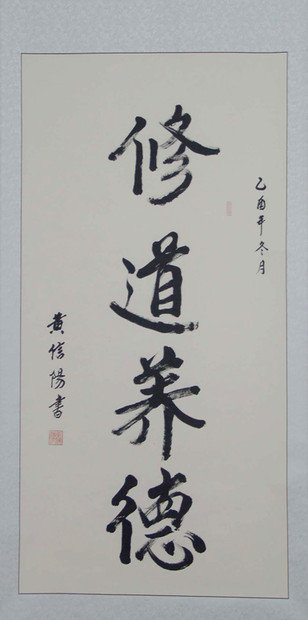 乙酉年冬月
修道养德
黄信阳书